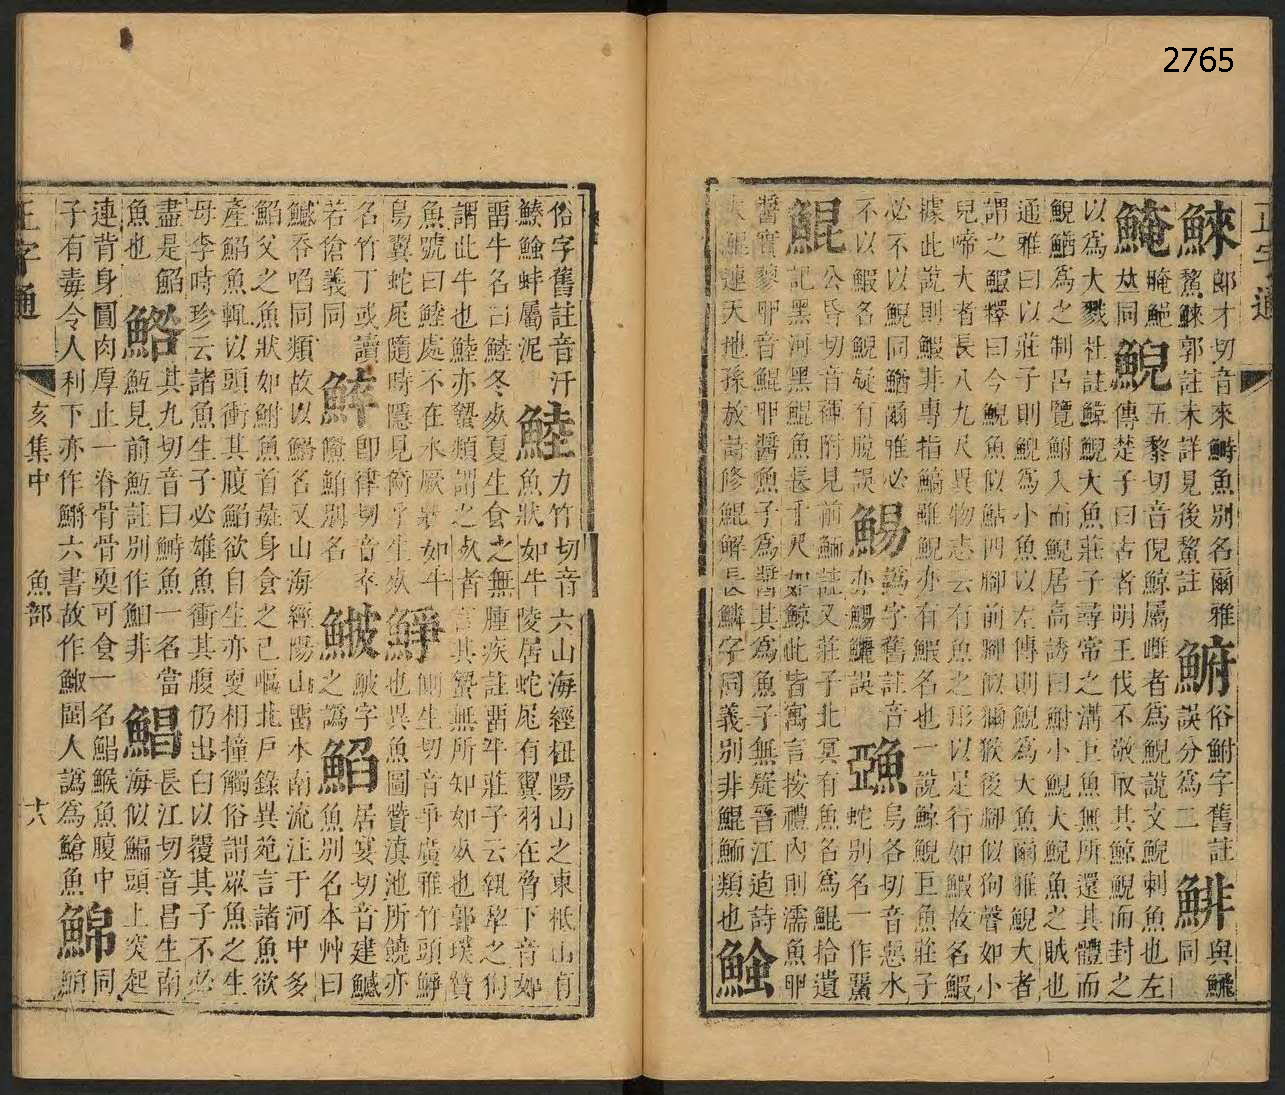 2765
正字通
鯠郎才切音來鰣魚別名爾雅
鯬鯠郭註未詳見後鯬註
鯆俗鮒字舊註
誤分為二
鯡與飝
同
䱋
腌䱋
𠀤同
鯢五黎切音倪鯨屬雌者為鯢說文鯢刺魚也左
傳楚子曰古者明王伐不敬取其鯨鯢而封之
以為大戮杜註鯨鯢大魚莊子尋常之溝巨魚無所還其體而
鯢鰌為之制呂覽鮒入而鯢居高誘曰鮒小鯢大鯢魚之賊也
通雅曰以莊子則鯢為小魚以左傳則鯢為大魚爾雅鯢大者
謂之鰕釋曰今鯢魚似鮎四腳前腳似獼猴後腳似狗聲如小
兒啼大者長八九尺異物志云有魚之形以足行如鰕故名鰕
據此說則鰕非專指鯢亦有鰕名也一說鯨鯢巨魚莊子
必不以鯢同鰌爾雅必
不以鰕名鯢疑有脫誤
鯣譌字舊註音
亦鯣鱺誤
烏各切音惡水
蛇別名一作
鯤公昏切音褌附見前鮞註又莊子北冥有魚名為鯤拾遺
記黑河黑鯤魚長千尺如鯨此皆寓言按禮內則濡魚卵
醬實蓼卵音鯤卵醬魚子為醬其為魚子無疑晉江逌詩
鯤連天地孫放詩修鯤解長鱗字同義別非鯤鮞類也
俗字舊註音汗
蚌屬泥
鯥力竹切音六山海經柢陽山之東柢山有
魚狀如牛陵居蛇尾有翼羽在脅下音如
畱牛名曰鯥冬死夏生食之無腫疾註畱牛莊子云執犛之狗
謂此牛也鯥亦蟄類謂之死者言其蟄無所知如死也郭璞贊
魚號曰鯥處不在水厥狀如牛
鳥翼蛇尾隨時隱見倚乎生死
鯙側生切音爭廣雅竹頭
也異魚圖贊滇池所饒亦
名竹丁或讀
若傖義同
䱣卽律切音卒
鱊鮬別名
鮍字
之譌
䱤居宴切音建鱤
魚別名本艸曰
鱤吞啗同類故以䱤名又山海經陽山畱水南流注于河中多
䱤父之魚狀如鮒魚首彘身食之已嘔北戶錄異苑言諸魚欲
產䱤魚輒以頭衝其腹䱤欲自生亦更相撞觸俗謂眾魚之生
母李時珍云諸魚生子必雄魚衝其腹仍出白以覆其子不必
盡是䱤
魚也
其九切音臼鰣魚一名當
魱見前魱註別作䱂非
鯧長江切音昌生南
海似鯿頭上突起
連背身圓肉厚止一脊骨骨耎可食一名鯧鯸魚腹中
子有毒令人利下亦作鱂六書故作䱜閩人譌為鯧魚
鯞
同
亥集中
魚部
十六